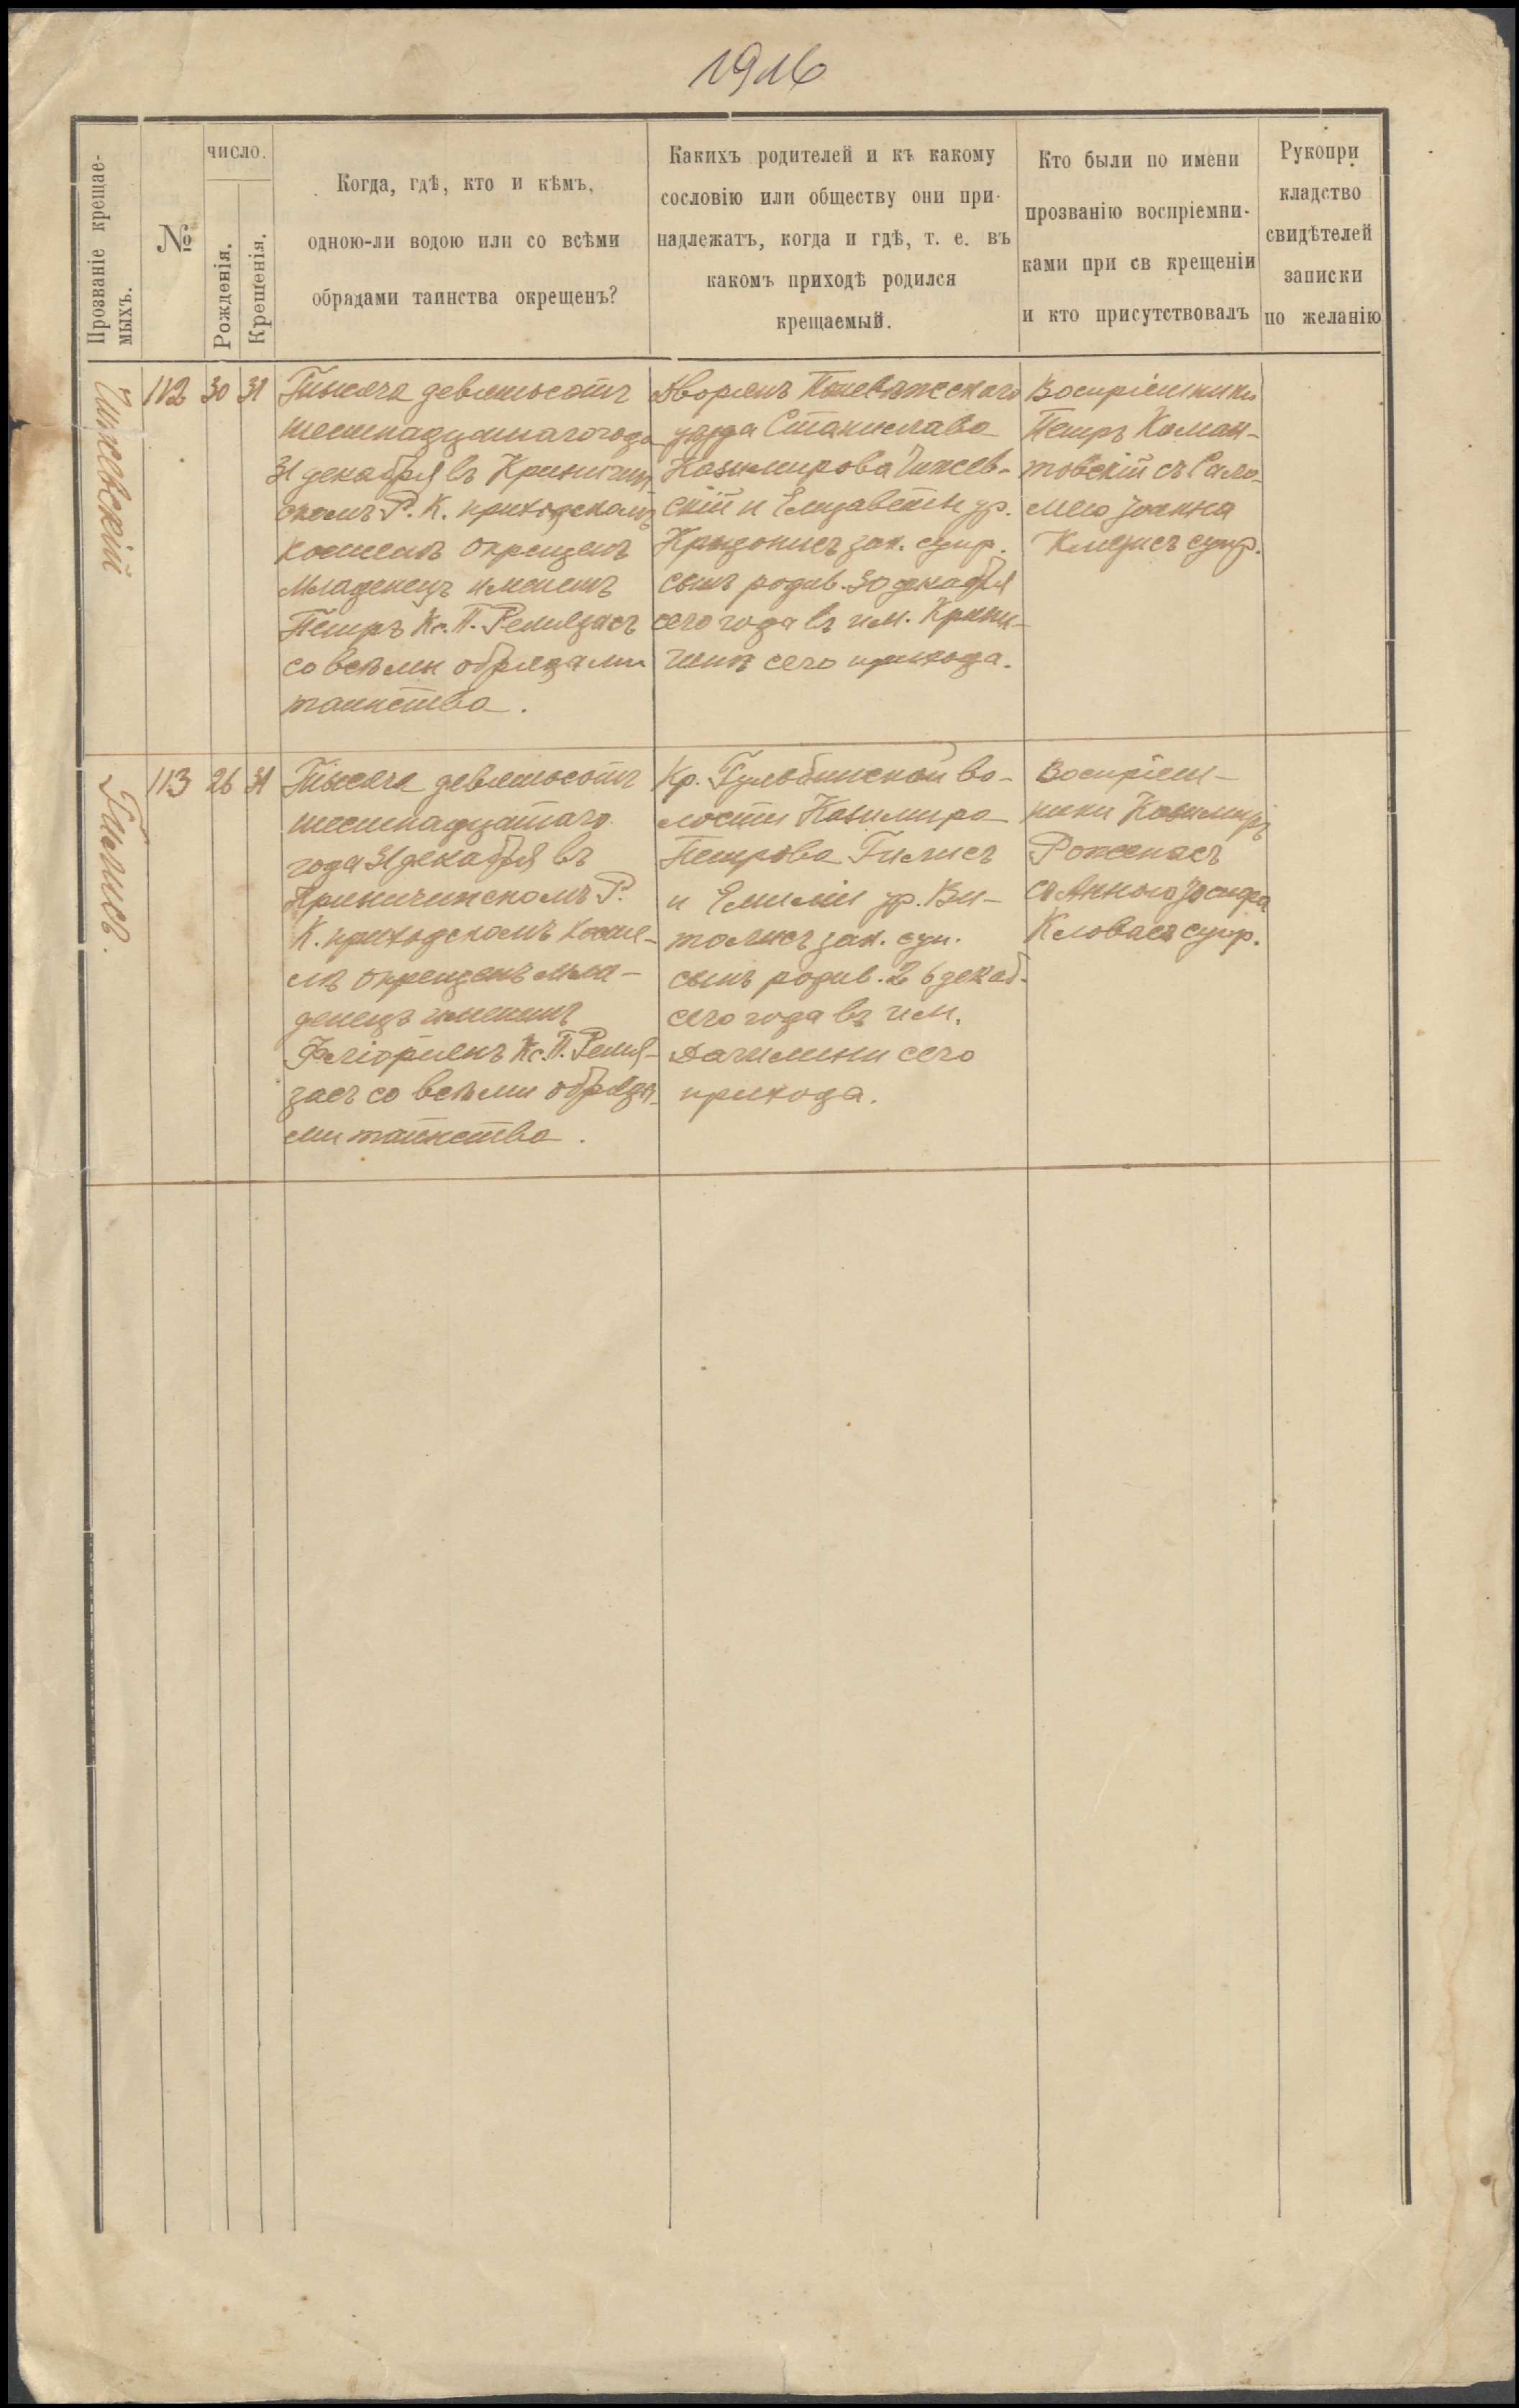 1916
Прозваніе крещае-
мыхъ.
№
число.
Рожденія.
Крещенія.
Когда, гдѣ, кто и кѣмъ,
одною-ли водою или со всѣми
обрядами таинства окрещенъ?
Какихъ родителей и къ какому
сословію или обществу они при-
надлежатъ, когда и гдѣ, т. е. въ
какомъ приходѣ родился
крещаемый.
Кто были по имени
прозванію воспріемни-
ками при св крещеніи
и кто присутствовалъ
Рукопри
кладство
свидѣтелей
записки
по желанію
Чижевскій
112
30
31
Тысяча девятьсотъ
шестнадцатаго года
31 декабря въ Криничин
скомъ Р. К. приходскомъ
костелѣ окрещенъ
младенецъ именемъ
Петръ Кс. П. Ремейзасъ
со всѣми обрядами
таинства.
Дворянъ Поневѣжскаго
уѣзда Станислава
Казимирова Чижев-
скій и Елизаветы ур.
зак. супр.
сынъ родив. 30 декабря
сего года въ им. Крини-
чинѣ сего прихода.
Воспріемники
Петръ Коман-
товскій съ Сало-
меею Іоанна
супр.
Гилисъ.
113
26
31
Тысяча девятьсотъ
шестнадцатаго
года 31 декабря въ
Криничинскомъ Р.
К. приходскомъ косте-
лѣ окрещенъ мла-
денецъ именемъ
Флоріянъ Кс. П. Ремей-
засъ со всѣми обряда-
ми таинства.
Кр. Гульбинской во-
лости Казимира
Петрова Гилисъ
и Емиліи ур. Ви-
толисъ зак. суп.
сынъ родив. 26 декаб.
сего года въ им.
Дагилини сего
прихода.
Воспріем-
ники Казимиръ
Роженасъ
съ Анною Іосифа
Кловасъ супр.